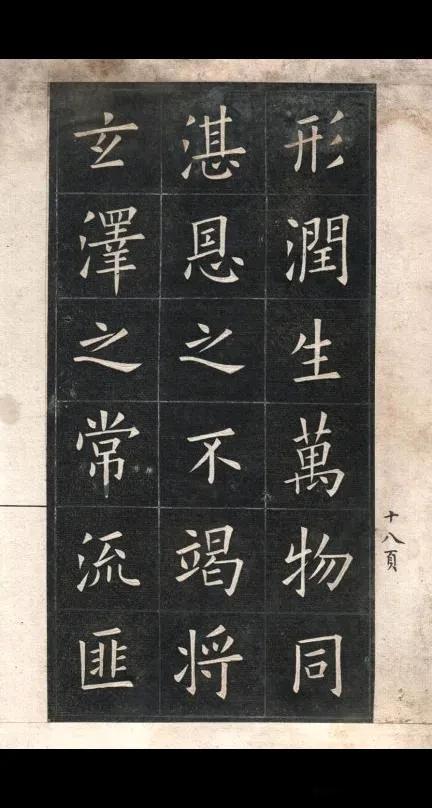 形潤生萬物同
湛恩之不竭将
玄澤之常流匪
十八頁